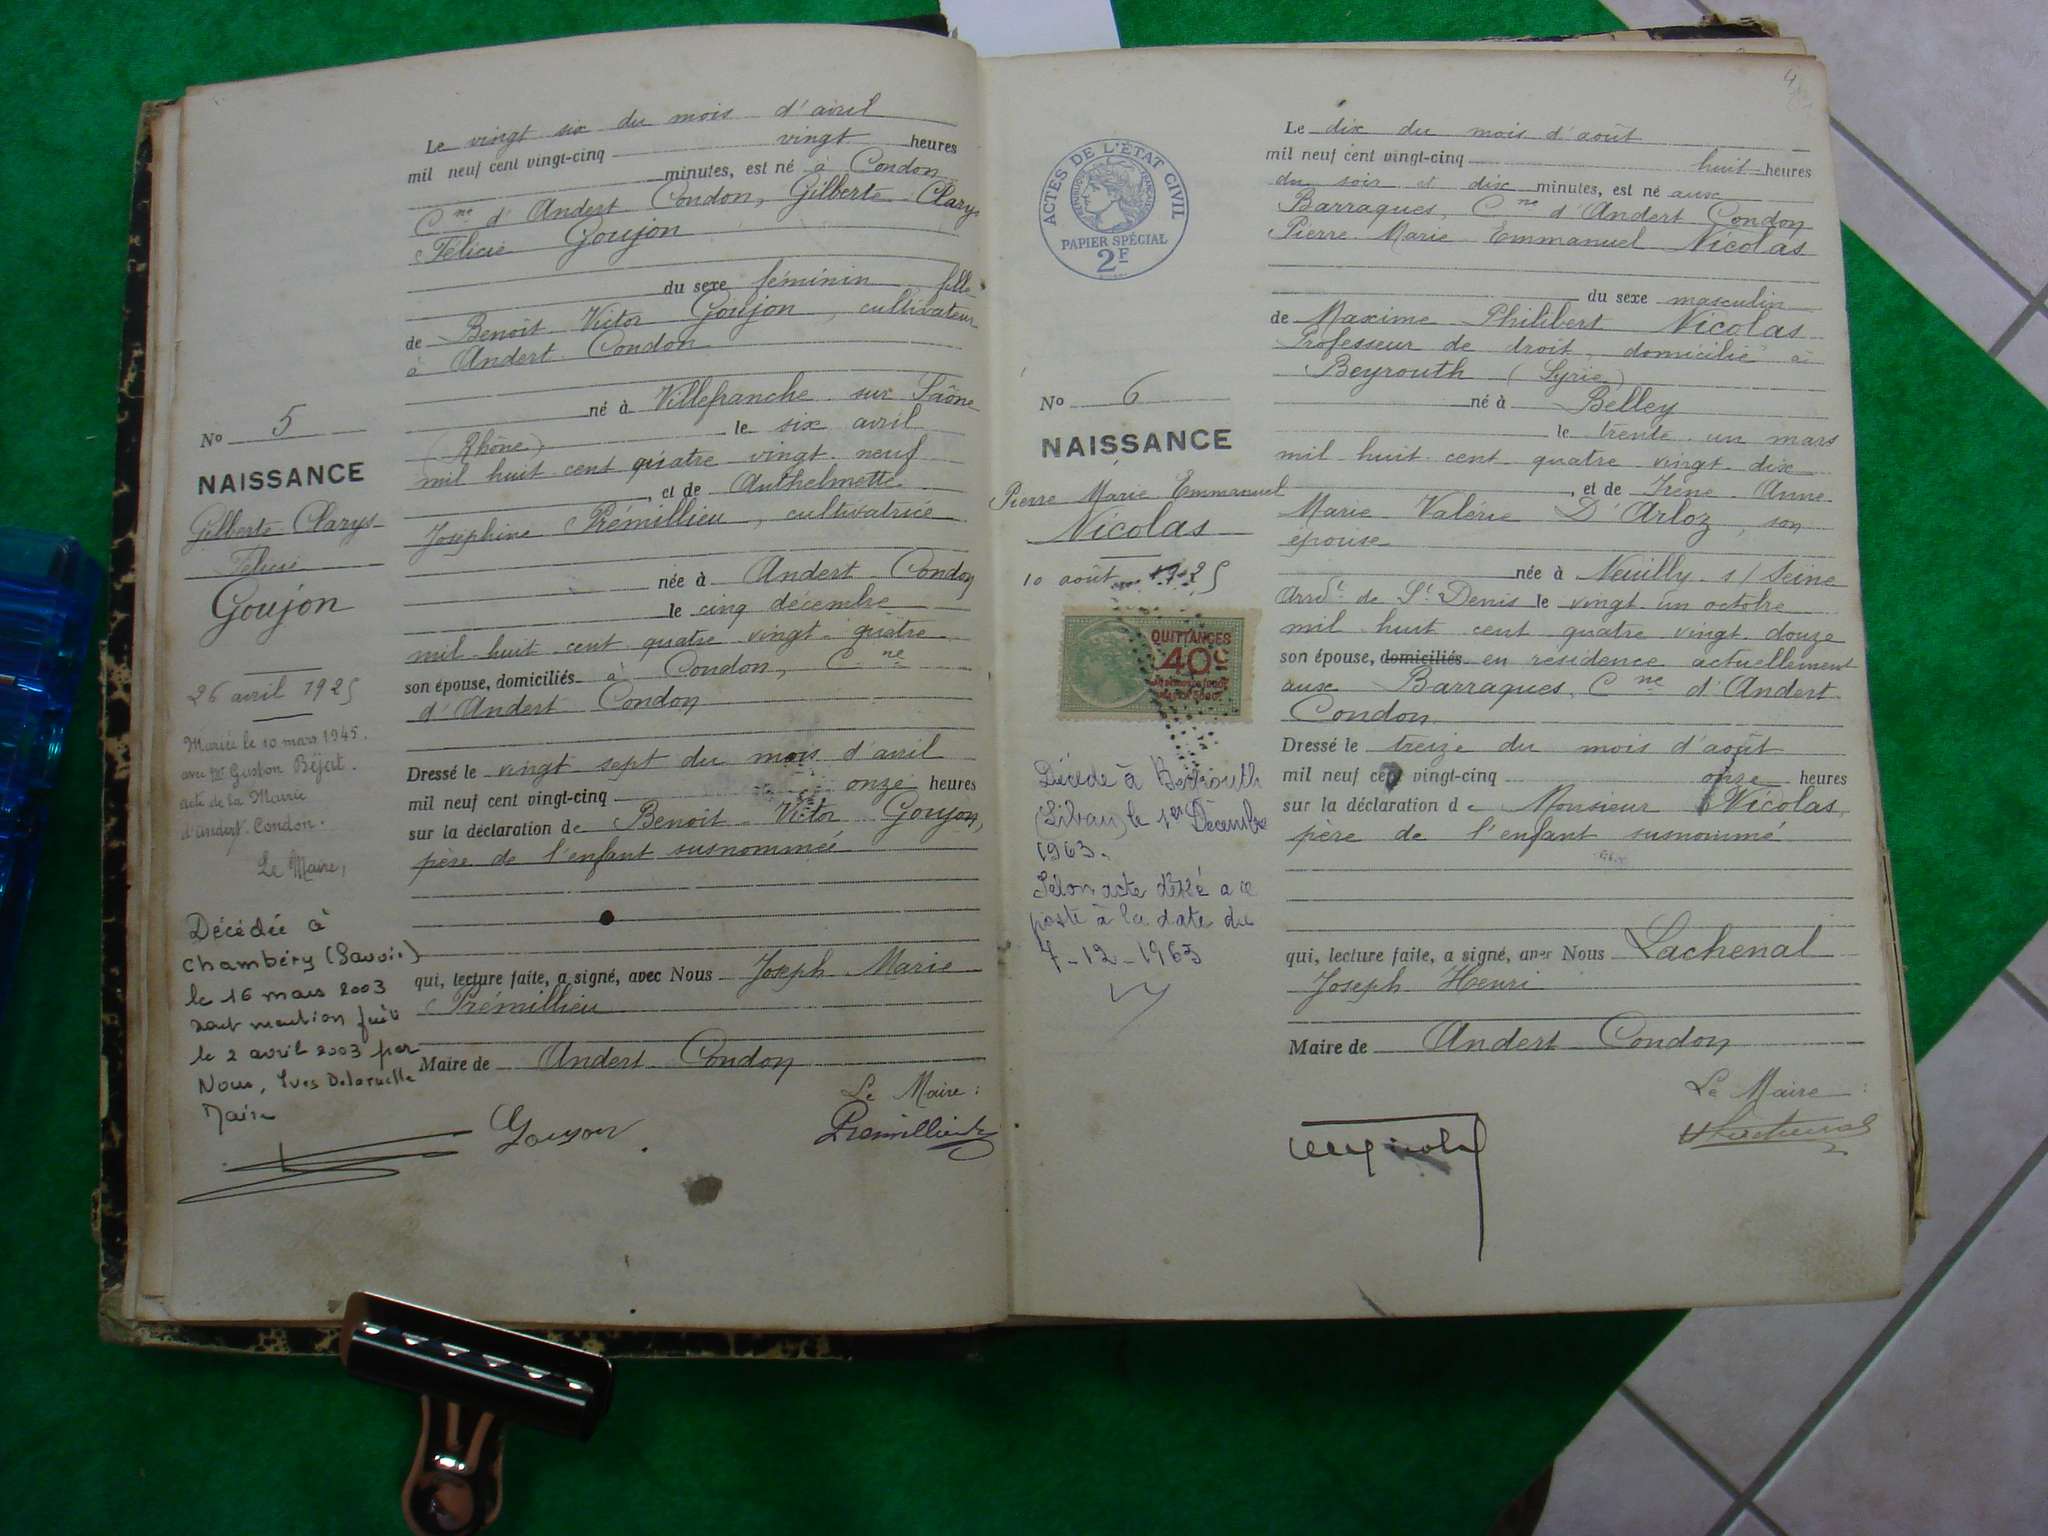 Le vingt six du mois d'avril
mil neuf cent vingt-cinq vingt heures
minutes, est né à Condon
Cne d'Andert Condon, Gilberte Clarys
Félicie Goujon
du sexe féminin fille
de Benoit Victor Goujon, cultivateur
à Andert Condon
né à Villefranche sur Saône
(Rhône) le six avril
mil huit cent quatre vingt neuf
, et de Anthelmette
Joséphine Prémillieu, cultivatrice
née à Andert Condon
le cinq décembre
mil huit cent quatre vingt quatre
son épouse, domiciliés à Condon, Cne
d'Andert Condon
Dressé le vingt sept du mois d'avril
mil neuf cent vingt-cinq onze heures
sur la déclaration de Benoit Victor Goujon,
père de l'enfant susnommée
qui, lecture faite, a signé, avec Nous Joseph Marie
Prémillieu
Maire de Andert Condon
Le Maire :
Goujon
Premillieu
No 5
NAISSANCE
Gilberte Clarys
Félicie
Goujon
26 avril 1925
Mariée le 10 mars 1945.
avec Mr Gaston Béjat.
acte de la Mairie
d'Andert-Condon.
Le Maire,
Décédée à
Chambéry (Savoie)
le 16 mars 2003
dont mention faite
le 2 avril 2003 par
Nous, Yves Delaruelle
Maire
4
ACTES DE L'ÉTAT CIVIL
RÉPUBLIQUE FRANÇAISE
PAPIER SPÉCIAL
2F
No 6
NAISSANCE
Pierre Marie Emmanuel
Nicolas
10 août 1925
QUITTANCES
40c
Décédé à Beyrouth
(Liban), le 1er Décembre
1963.
Selon acte dressé à ce
poste à la date du
4-12-1963
Le dix du mois d'août
mil neuf cent vingt-cinq huit heures
du soir et dix minutes, est né aux
Barraques, Cne d'Andert Condon
Pierre Marie Emmanuel Nicolas
du sexe masculin
de Maxime Philibert Nicolas
Professeur de droit, domicilié à
Beyrouth (Syrie)
né à Belley
le trente un mars
mil huit cent quatre vingt dix
, et de Irène Anne
Marie Valérie D'Arloz, son
épouse
née à Neuilly s/ Seine
Arrdt de St Denis le vingt un octobre
mil huit cent quatre vingt douze
son épouse, domiciliés en résidence actuellement
aux Barraques, Cne d'Andert
Condon
Dressé le treize du mois d'août
mil neuf cent vingt-cinq onze heures
sur la déclaration de Monsieur Nicolas,
père de l'enfant susnommé
qui, lecture faite, a signé, avec Nous Lachenal
Joseph Henri
Maire de Andert Condon
Le Maire :
Lachenal